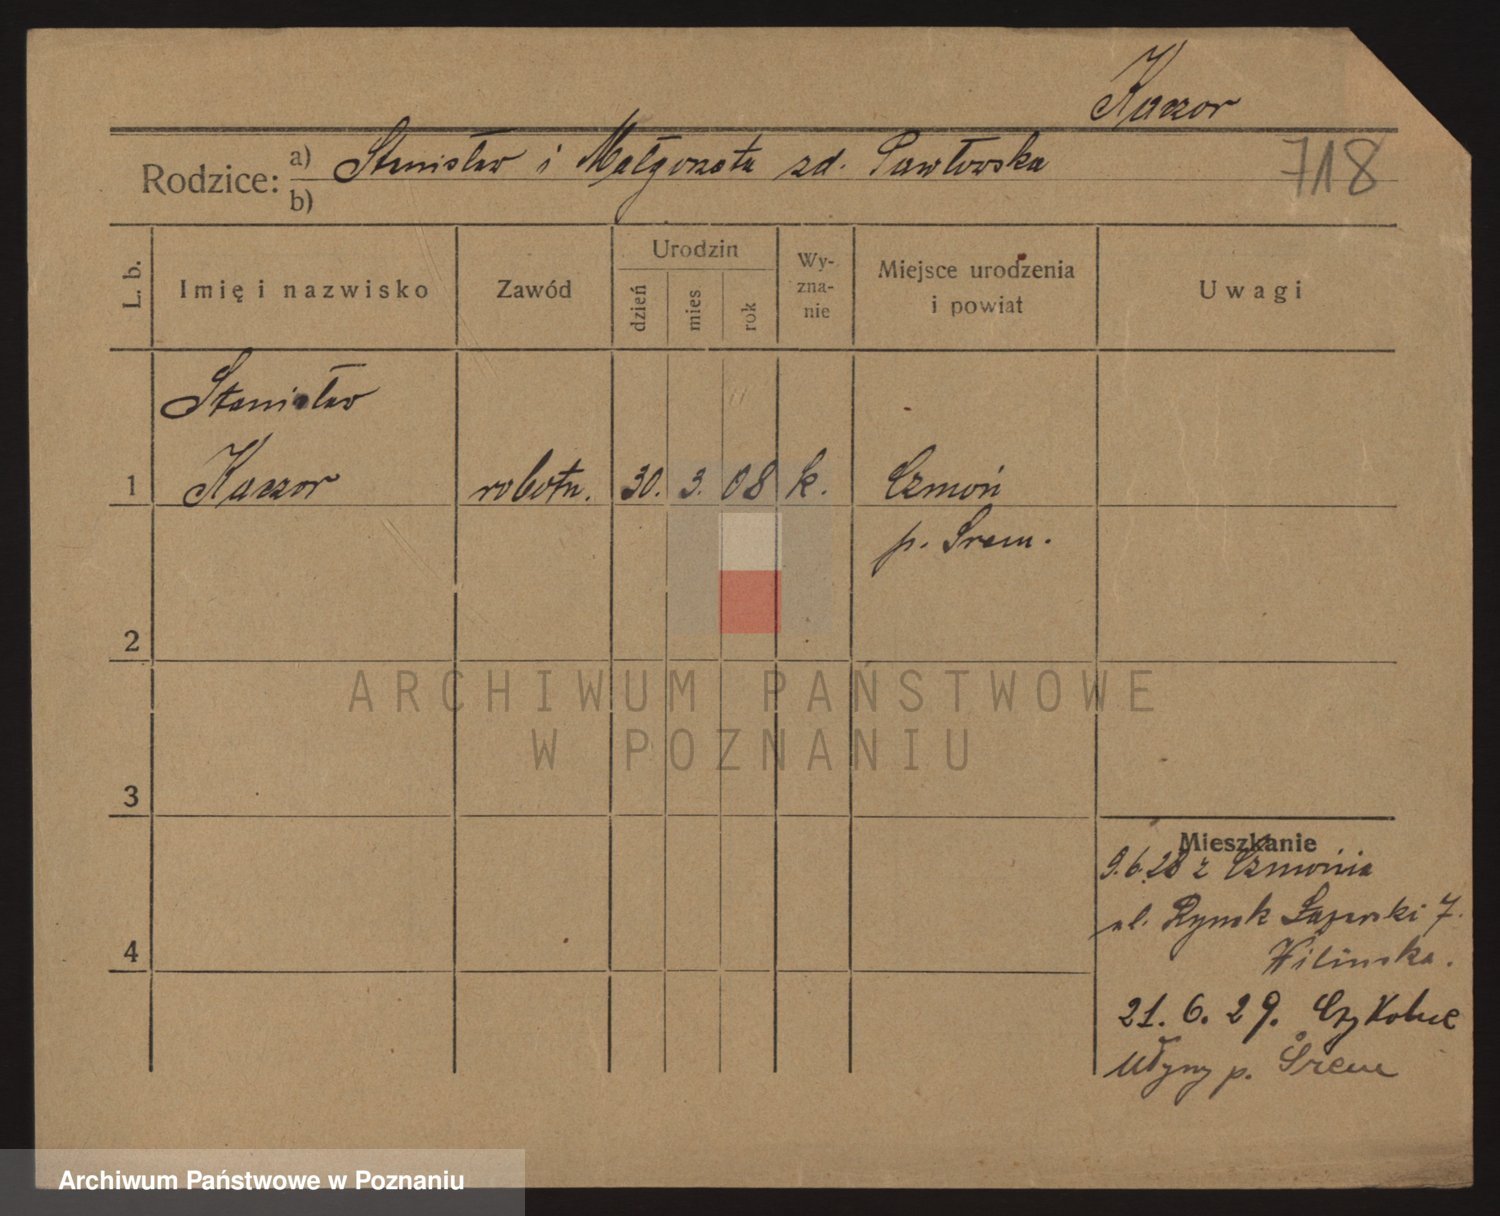 Kaczor
Rodzice: a) Stanisław i Małgorzata zd. Pawłowska
b)
718
L. b.
Imię i nazwisko
Zawód
Urodzin
dzień
mies
rok
Wy-
zna-
nie
Miejsce urodzenia
i powiat
Uwagi
Stanisław
1 Kaczor robotn. 30. 3. 08 k. Czmoń
p. Srem.
2
3
4
Mieszkanie
9.6.28 z Czmonia
ul. Rynek Łazarski 7.
21. 6. 29.
Młyny p. Śrem
ARCHIWUM PAŃSTWOWE
W POZNANIU
Archiwum Państwowe w Poznaniu